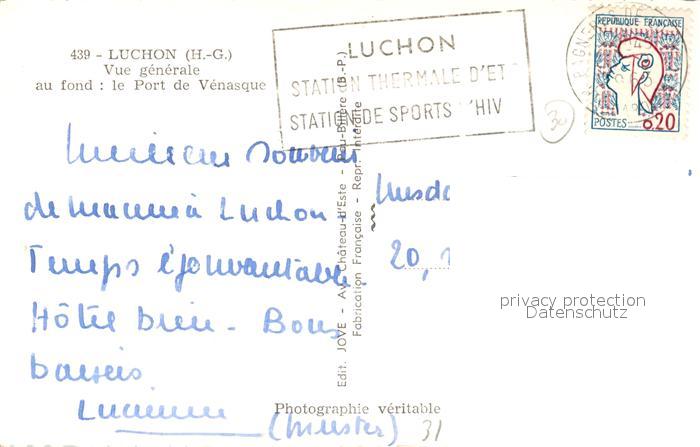 439 - LUCHON (H.-G.)
Vue générale
au fond : le Port de Vénasque
LUCHON
STATION THERMALE D'ET
STATION DE SPORTS 'HIV
REPUBLIQUE FRANÇAISE
POSTES 0,20
30
souvenir
de maman à Luchon.
Temps épouvantable.
Hôtel bien - Bons
baisers
Lucienne
(Munster)
20, 1
Edit. JOVE - Av. Château-d'Este - Pau-Billère (B.-P.)
Fabrication Française - Repr. Interdite
privacy protection
Datenschutz
Photographie véritable
31